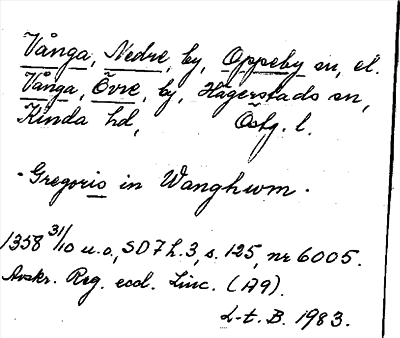 Vånga, Nedre, by, Oppeby sn, el.
Vånga, Övre, by, Hägerstads sn,
Kinda hd, Östg. l.
- Gregoris in Wanghwm.
1358 31/10 u.o, SD7 h.3, s. 125, nr 6005.
Avskr. Reg. eccl. Linc. (A9).
L-t. B. 1983.